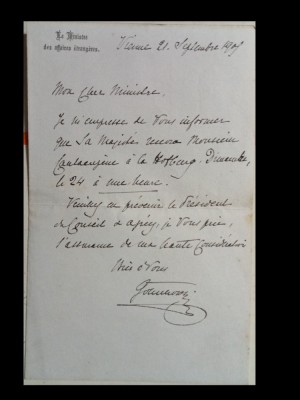 Le Ministre
des affaires étrangères.
Vienne 21. Septembre 1905
Mon cher Ministre.
Je m'empresse de Vous informer
que Sa Majesté recevra Monsieur
Cantacuzène à la Hofburg, Dimanche,
le 24 à une heure.
Veuillez en prévenir le Président
du Conseil & agréez, je Vous prie,
l'assurance de ma haute Considération
Bien à Vous
Goluchowski